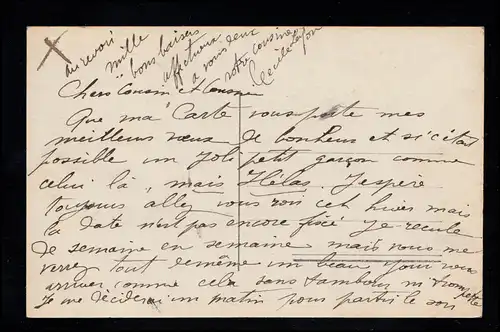 Chers Cousin et Cousine
Que ma Carte vous porte mes
meilleurs vœux de bonheur et si c'était
possible un joli petit garçon comme
celui là, mais Hélas, J'espère
toujours aller vous voir cet hiver mais
la date n'est pas encore fixée je recule
de semaine en semaine mais vous me
verrez tout de même un beau jour vous
arriver comme cela sans tambour ni trompette
Je me déciderai un matin pour partir le soir
au revoir
mille bons baisers
affectueux
a vous deux
votre cousine
Cecile